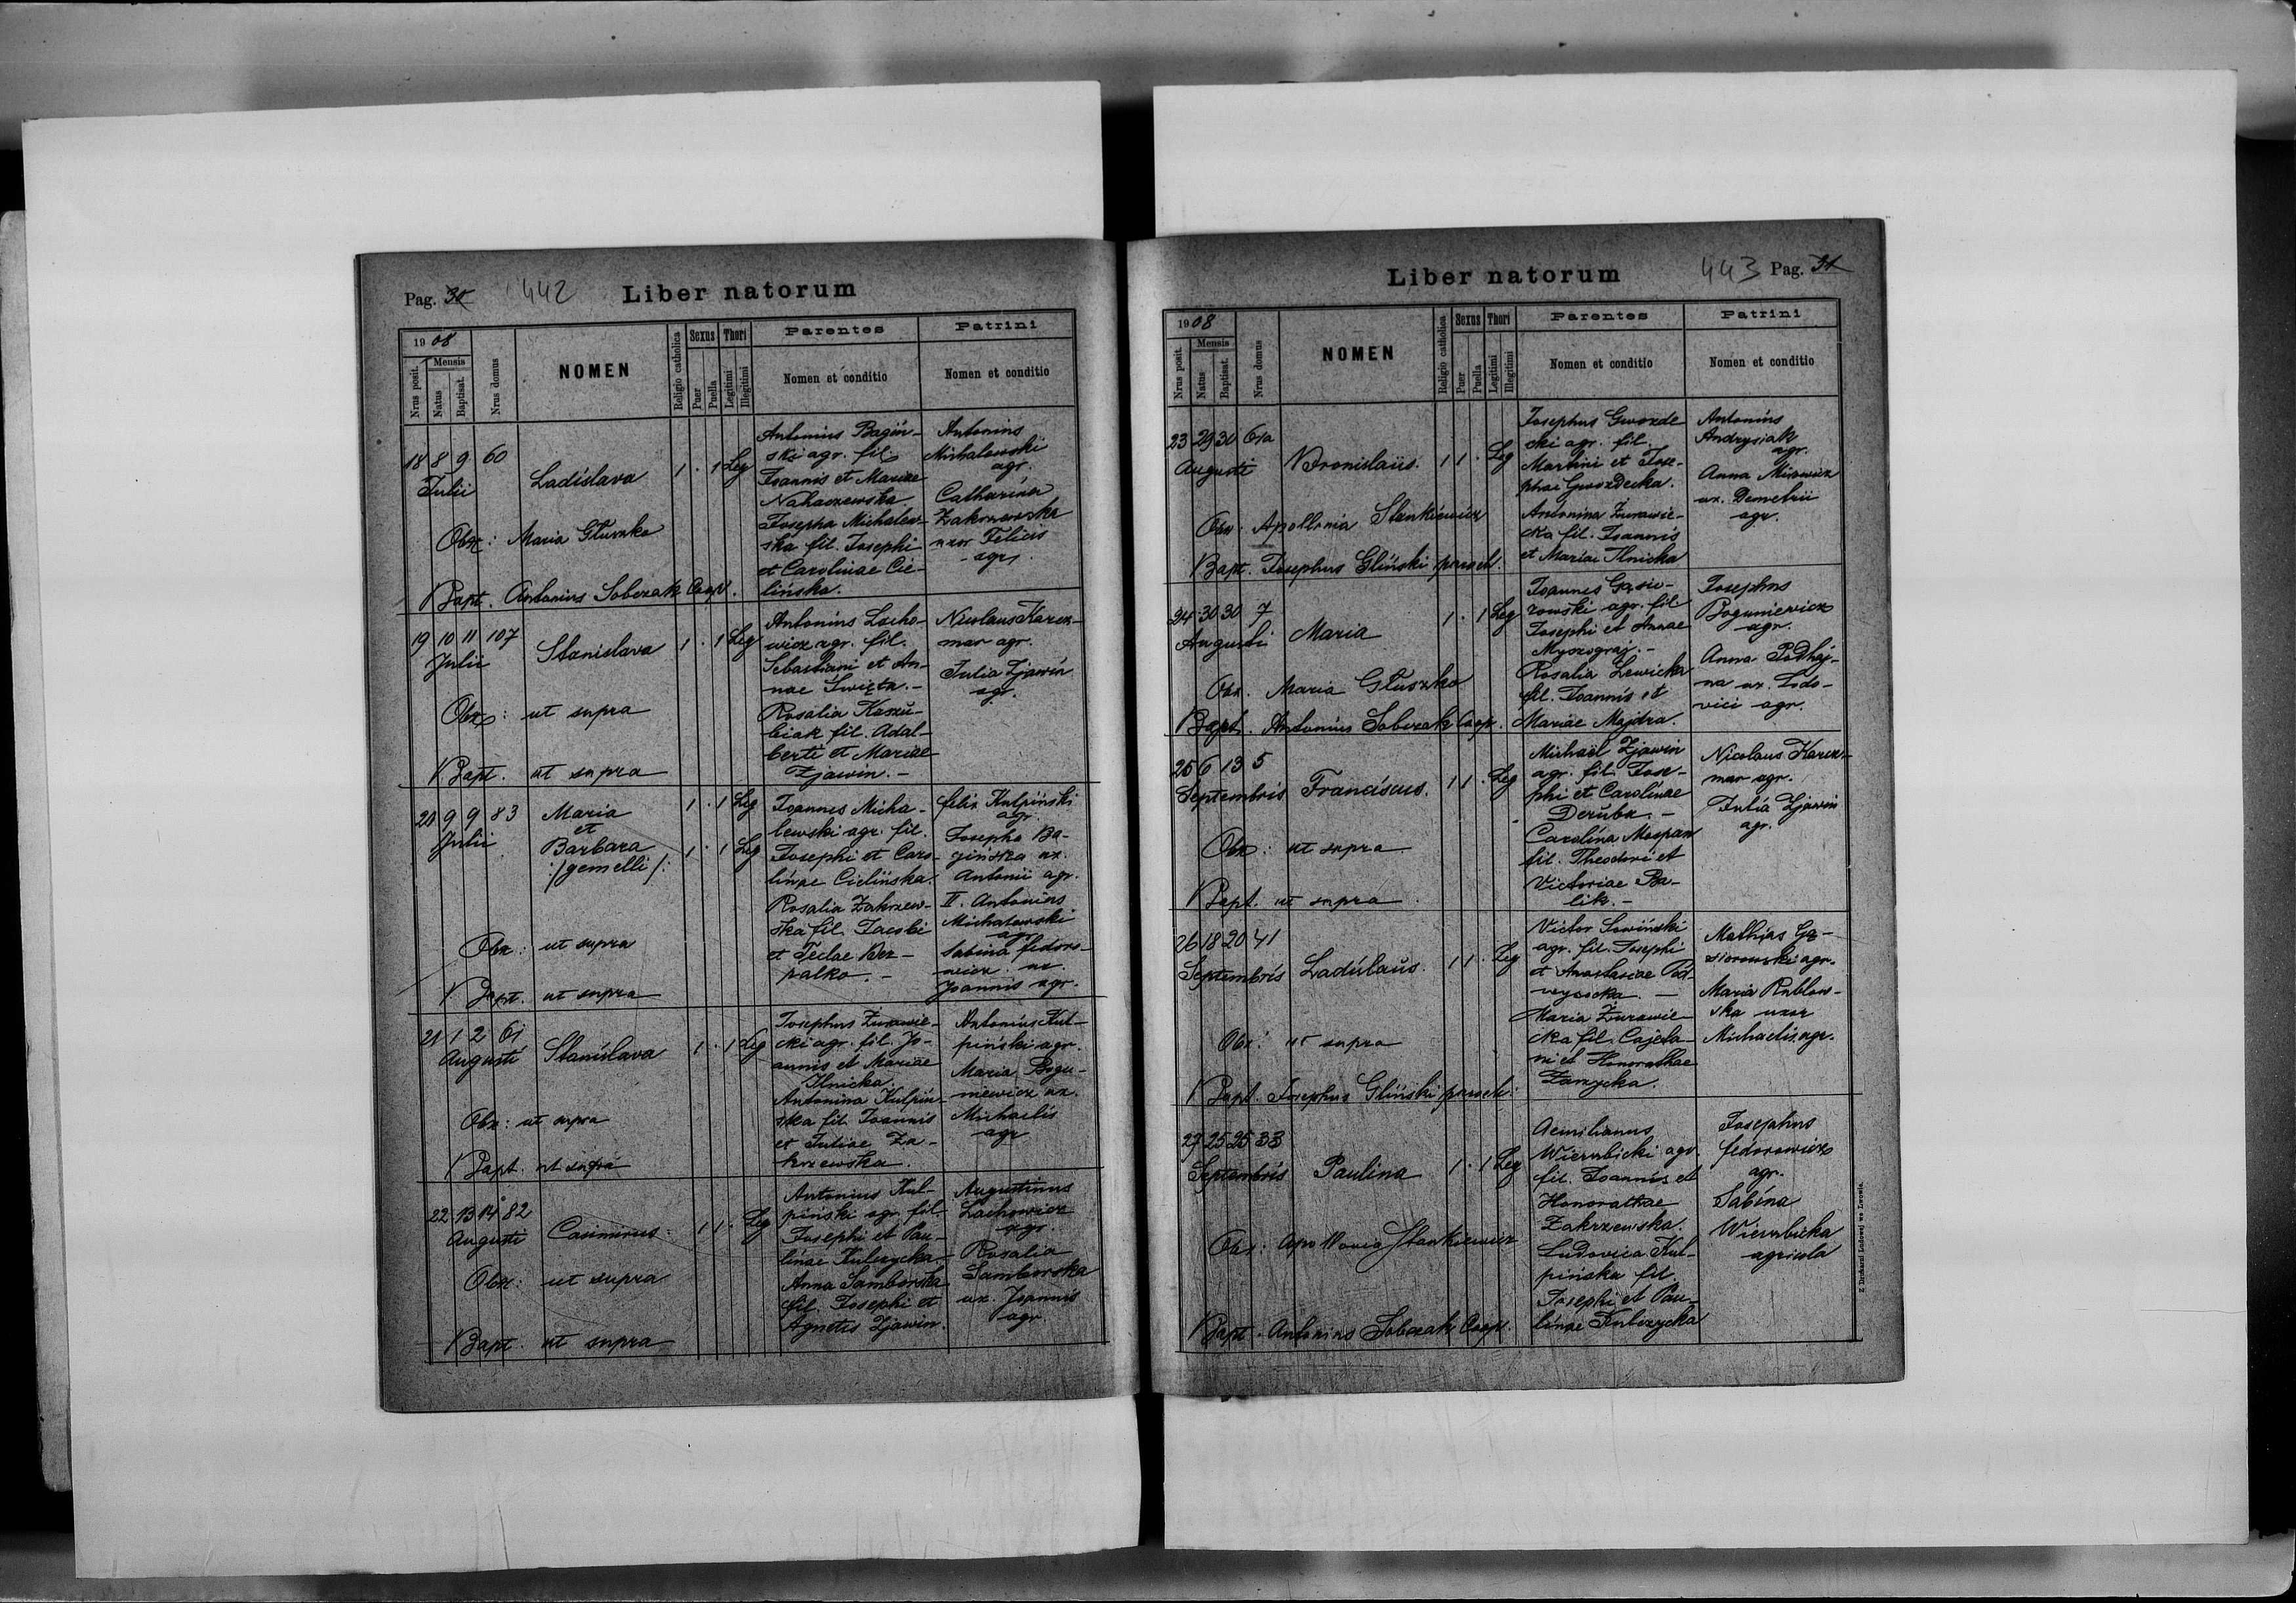 Pag. 30 442 Liber natorum
1908
Nrus posit.
Mensis
Natus
Baptisat.
Nrus domus
NOMEN
Religio catholica
Sexus
Puer
Puella
Thori
Legitimi
Illegitimi
Parentes
Nomen et conditio
Patrini
Nomen et conditio
18 8 9 60
Julii
Ladislava
1 . 1 Leg
Obst: Maria Głuszko
Bapt. Antonius Sobczak Coop.
Antonius Bagiń-
ski agr. fil.
Joannis et Mariae
Nahaczewska
Josepha Michalew-
ska fil. Josephi
et Carolinae Cie-
lińska.
Antonius
Michalewski
agr.
Catharina
Zakrzewska
uxor Felicis
agr.
19 10 11 107
Julii
Stanislava
1 . 1 Leg
Obst: ut supra
Bapt. ut supra
Antonius Lacho-
wicz agr. fil.
Sebastiani et An-
nae Święta.-
Rosalia Kaszu-
biak fil. Adal-
berti et Mariae
Zjawin.-
Nicolaus Karcz-
mar agr.
Julia Zjawin
agr.
20 9 9 83
Julii
Maria
et
Barbara
:/gemelli/:
1 . 1 Leg
1 . 1 Leg
Obst: ut supra
Bapt. ut supra
Joannes Micha-
lewski agr. fil.
Josephi et Caro-
linae Cielińska.
Rosalia Zakrzew-
ska fil. Jacobi
et Teclae Brz-
palko.-
Felix Kulpiński
agr.
Josepha Ba-
gińska ux.
Antonii agr.
II. Antonius
Michalewski
agr.
Sabina Fedoro-
wicz ux.
Joannis agr.
21 1 2 61
Augusti
Stanislava
1 . 1 Leg
Obst: ut supra
Bapt. ut supra
Josephus Żurawie-
cki agr. fil. Jo-
annis et Mariae
Ilnicka.
Antonina Kulpiń-
ska fil. Joannis
et Juliae Za-
krzewska.
Antonius Kul-
piński agr.
Maria Bogu-
niewicz ux.
Michaelis
agr
22 13 14 82
Augusti
Casimirus.
1 1 . Leg
Obst: ut supra
Bapt. ut supra
Antonius Kul-
piński agr. fil.
Josephi et Pau-
linae Kulczycka.
Anna Samborska
fil. Josephi et
Agnetis Zjawin.
Augustinus
Lachowicz
agr.
Rosalia
Samborska
ux. Joannis
agr.
Liber natorum 443 Pag. 31
1908
Nrus posit.
Mensis
Natus
Baptisat.
Nrus domus
NOMEN
Religio catholica
Sexus
Puer
Puella
Thori
Legitimi
Illegitimi
Parentes
Nomen et conditio
Patrini
Nomen et conditio
23 29 30 61a
Augusti
Bronislaus.
1 1 . Leg
Obst. Apollonia Stankiewicz
Bapt. Josephus Gliński paroch.
Josephus Gwozde
cki agr. fil.
Martini et Jose-
phae Gwozdecka.
Antonina Żurawie-
cka fil. Joannis
et Mariae Ilnicka
Antonius
Andrysiak
agr.
Anna Misiewicz
ux. Demetrii
agr.
24 30 30 7
Augusti
Maria
1 . 1 Leg
Obst. Maria Głuszko
Bapt. Antonius Sobczak Coop.
Joannes Gąsio-
rowski agr. fil
Josephi et Annae
Myszograj.-
Rosalia Lewicka
fil. Joannis et
Mariae Majdra.
Josephus
Boguniewicz
agr.
Anna Podhaj-
na ux. Lodo-
vici agr.
25 6 13 5
Septembris
Franciscus.
1 1 . Leg
Obst: ut supra
Bapt. ut supra
Michaël Zjawin
agr. fil. Jose-
phi et Carolinae
Deruba.-
Carolina Mospan
fil. Theodori et
Victoriae Ba-
lik.-
Nicolaus Karcz-
mar agr.
Julia Zjawin
agr.
26 18 20 41
Septembris
Ladislaus.
1 1 . Leg
Obst: ut supra
Bapt. Josephus Gliński paroch.
Victor Sowiński
agr. fil. Josephi
et Anastasiae Pod
wysocka.-
Maria Żurawie
cka fil. Cajeta-
ni et Honorathae
Zarzycka.
Mathias Gą-
siorowski agr.
Maria Rublow-
ska uxor
Michaelis agr.
27 25 25 33
Septembris
Paulina
1 . 1 Leg
Obst: Apollonia Stankiewicz
Bapt. Antonius Sobczak Coop.
Aemilianus
Wierzbicki agr.
fil. Joannis et
Honorathae
Zakrzewska.
Ludovica Kul-
pińska fil.
Josephi et Pau-
linae Kulczycka
Josephus
Fedorowicz
agr.
Sabina
Wierzbicka
agricola
Z Drukarni Ludowej we Lwowie.